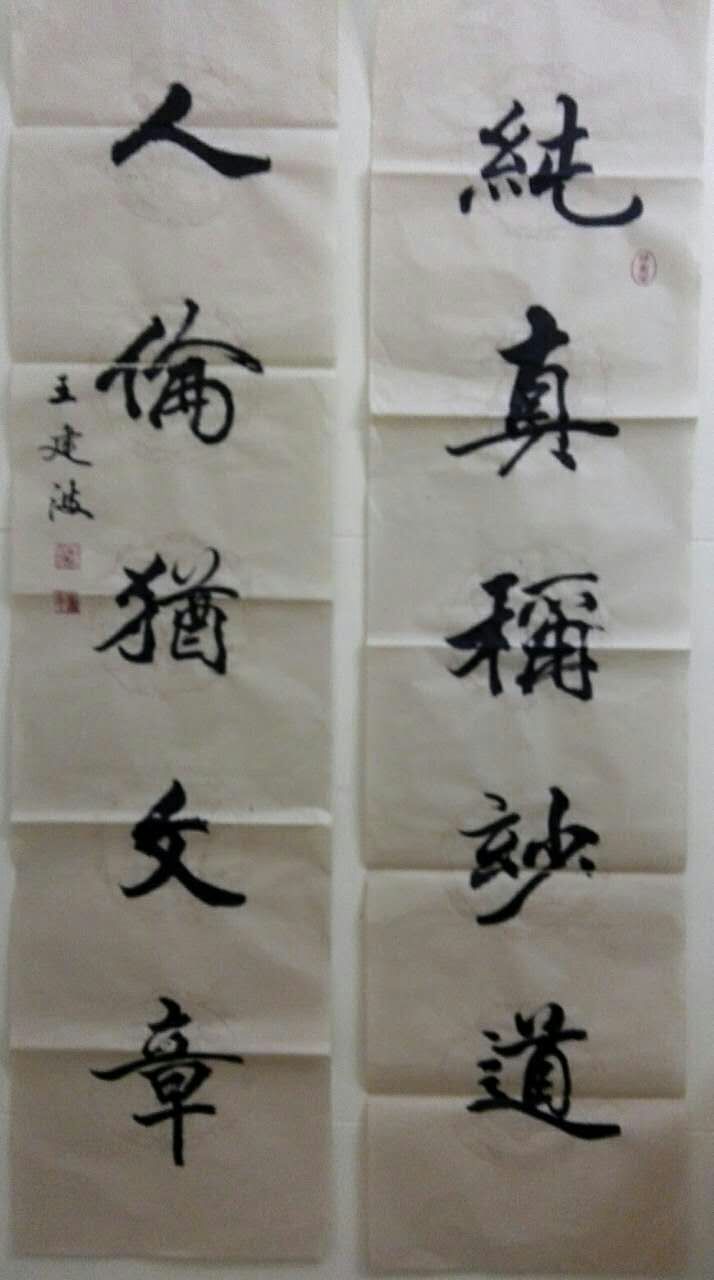 純真稱玅道
人倫猶文章
王建波